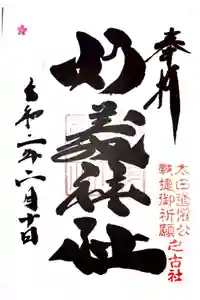 奉拝
太田道灌公
戦捷御祈願
之古社
妙義神社
令和二年二月十日